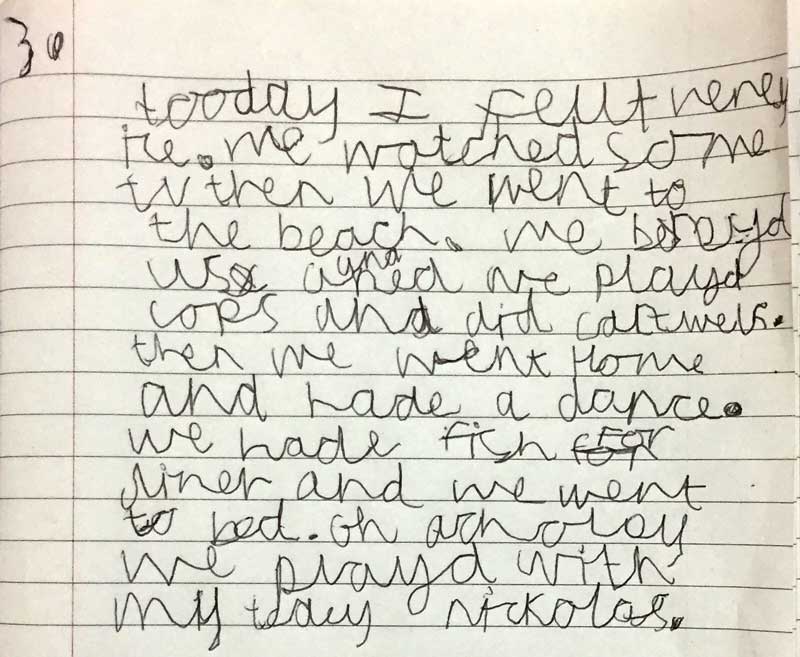 30
tooday I fellt verey
ite. we watched some
tv then we went to
the beach. we bereyd
us and we playd
cops and did cartwels.
then we went Home
and hade a dance.
we hade fish for
diner and we went
to bed. oh acholey
we playd with
my tdacy nickolas.